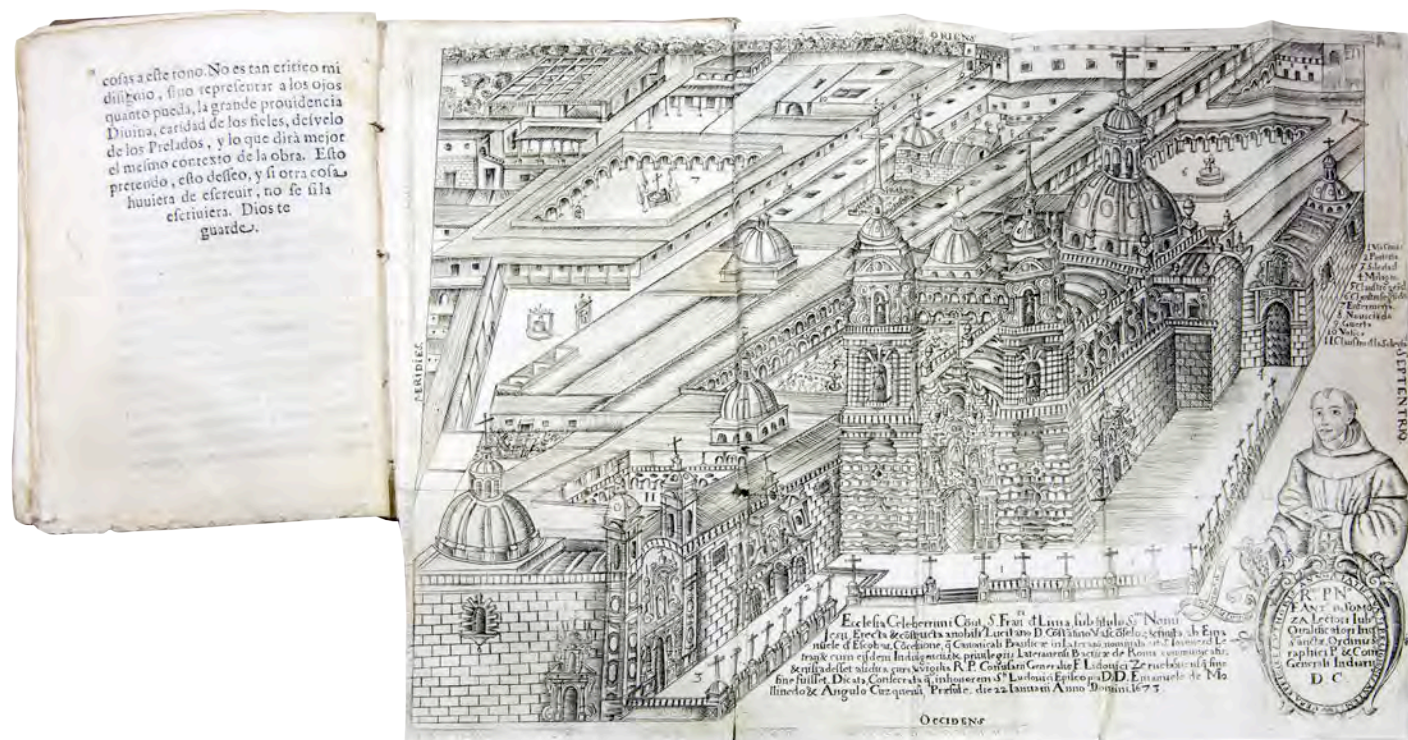 cosas a este tono. No es tan critico mi
disignio, sino representar a los ojos
quanto pueda, la grande prouidencia
Diuina, caridad de los fieles, desvelo
de los Prelados, y lo que dirà mejor
el mesmo contexto de la obra. Esto
pretendo, esto desseo, y si otra cosa
huuiera de escreuir, no se si la
escriuiera. Dios te
guarde.
ORIENS
MERIDIES
SEPTENTRIO
1 Via Crucis
2 Porteria
3 Soledad
4 Milagro
7 Enfermeria
8 Nouiciado
9 Guerta
11 Claustro d la Soleda
Ecclesia Celeberrimi Cõut. S. Franci d Lima, sub titulo Smi Nomi
Iesu, Erecta & cõstructa a nobili Lucitano D. Cõstãtino Vascõselo, & finita ab Ema
nuele d Escobar,
tran & cum eisdem Indulgencijs & priuilegijs Lateranensi Bacticæ de Roma communicatis,
R. P. Comissarij Generalis F. Ludouici Zeruela
fine fuisset. Dicata, Consecrata q, in honorem Sti Ludouici Episcopi a D.D. Emanuele de Mo
llinedo & Angulo Cuzquensi Præsule. die 22 Ianuarij Anno Domini 1673.
OCCIDENS
R. P. N.
F. ANT. D SOMO
ZA, Lectori Iub.
Qualificatori Inq
Ordinis
P. & Com
Generali Indiarũ
D. C